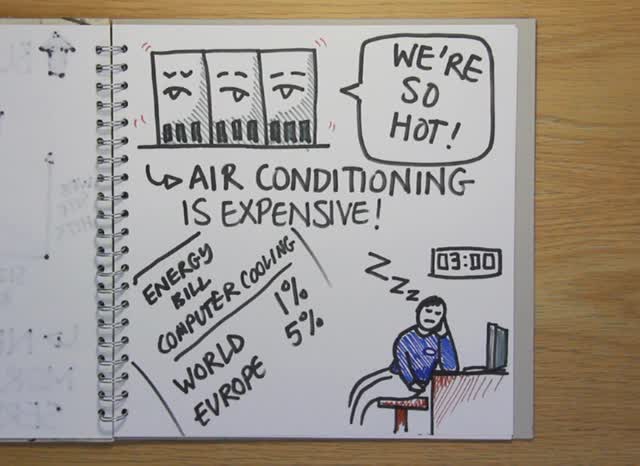 WE'RE
SO
HOT!
AIR CONDITIONING
IS EXPENSIVE!
ENERGY
BILL
COMPUTER COOLING
WORLD 1%
EUROPE 5%
03:00
ZZZ